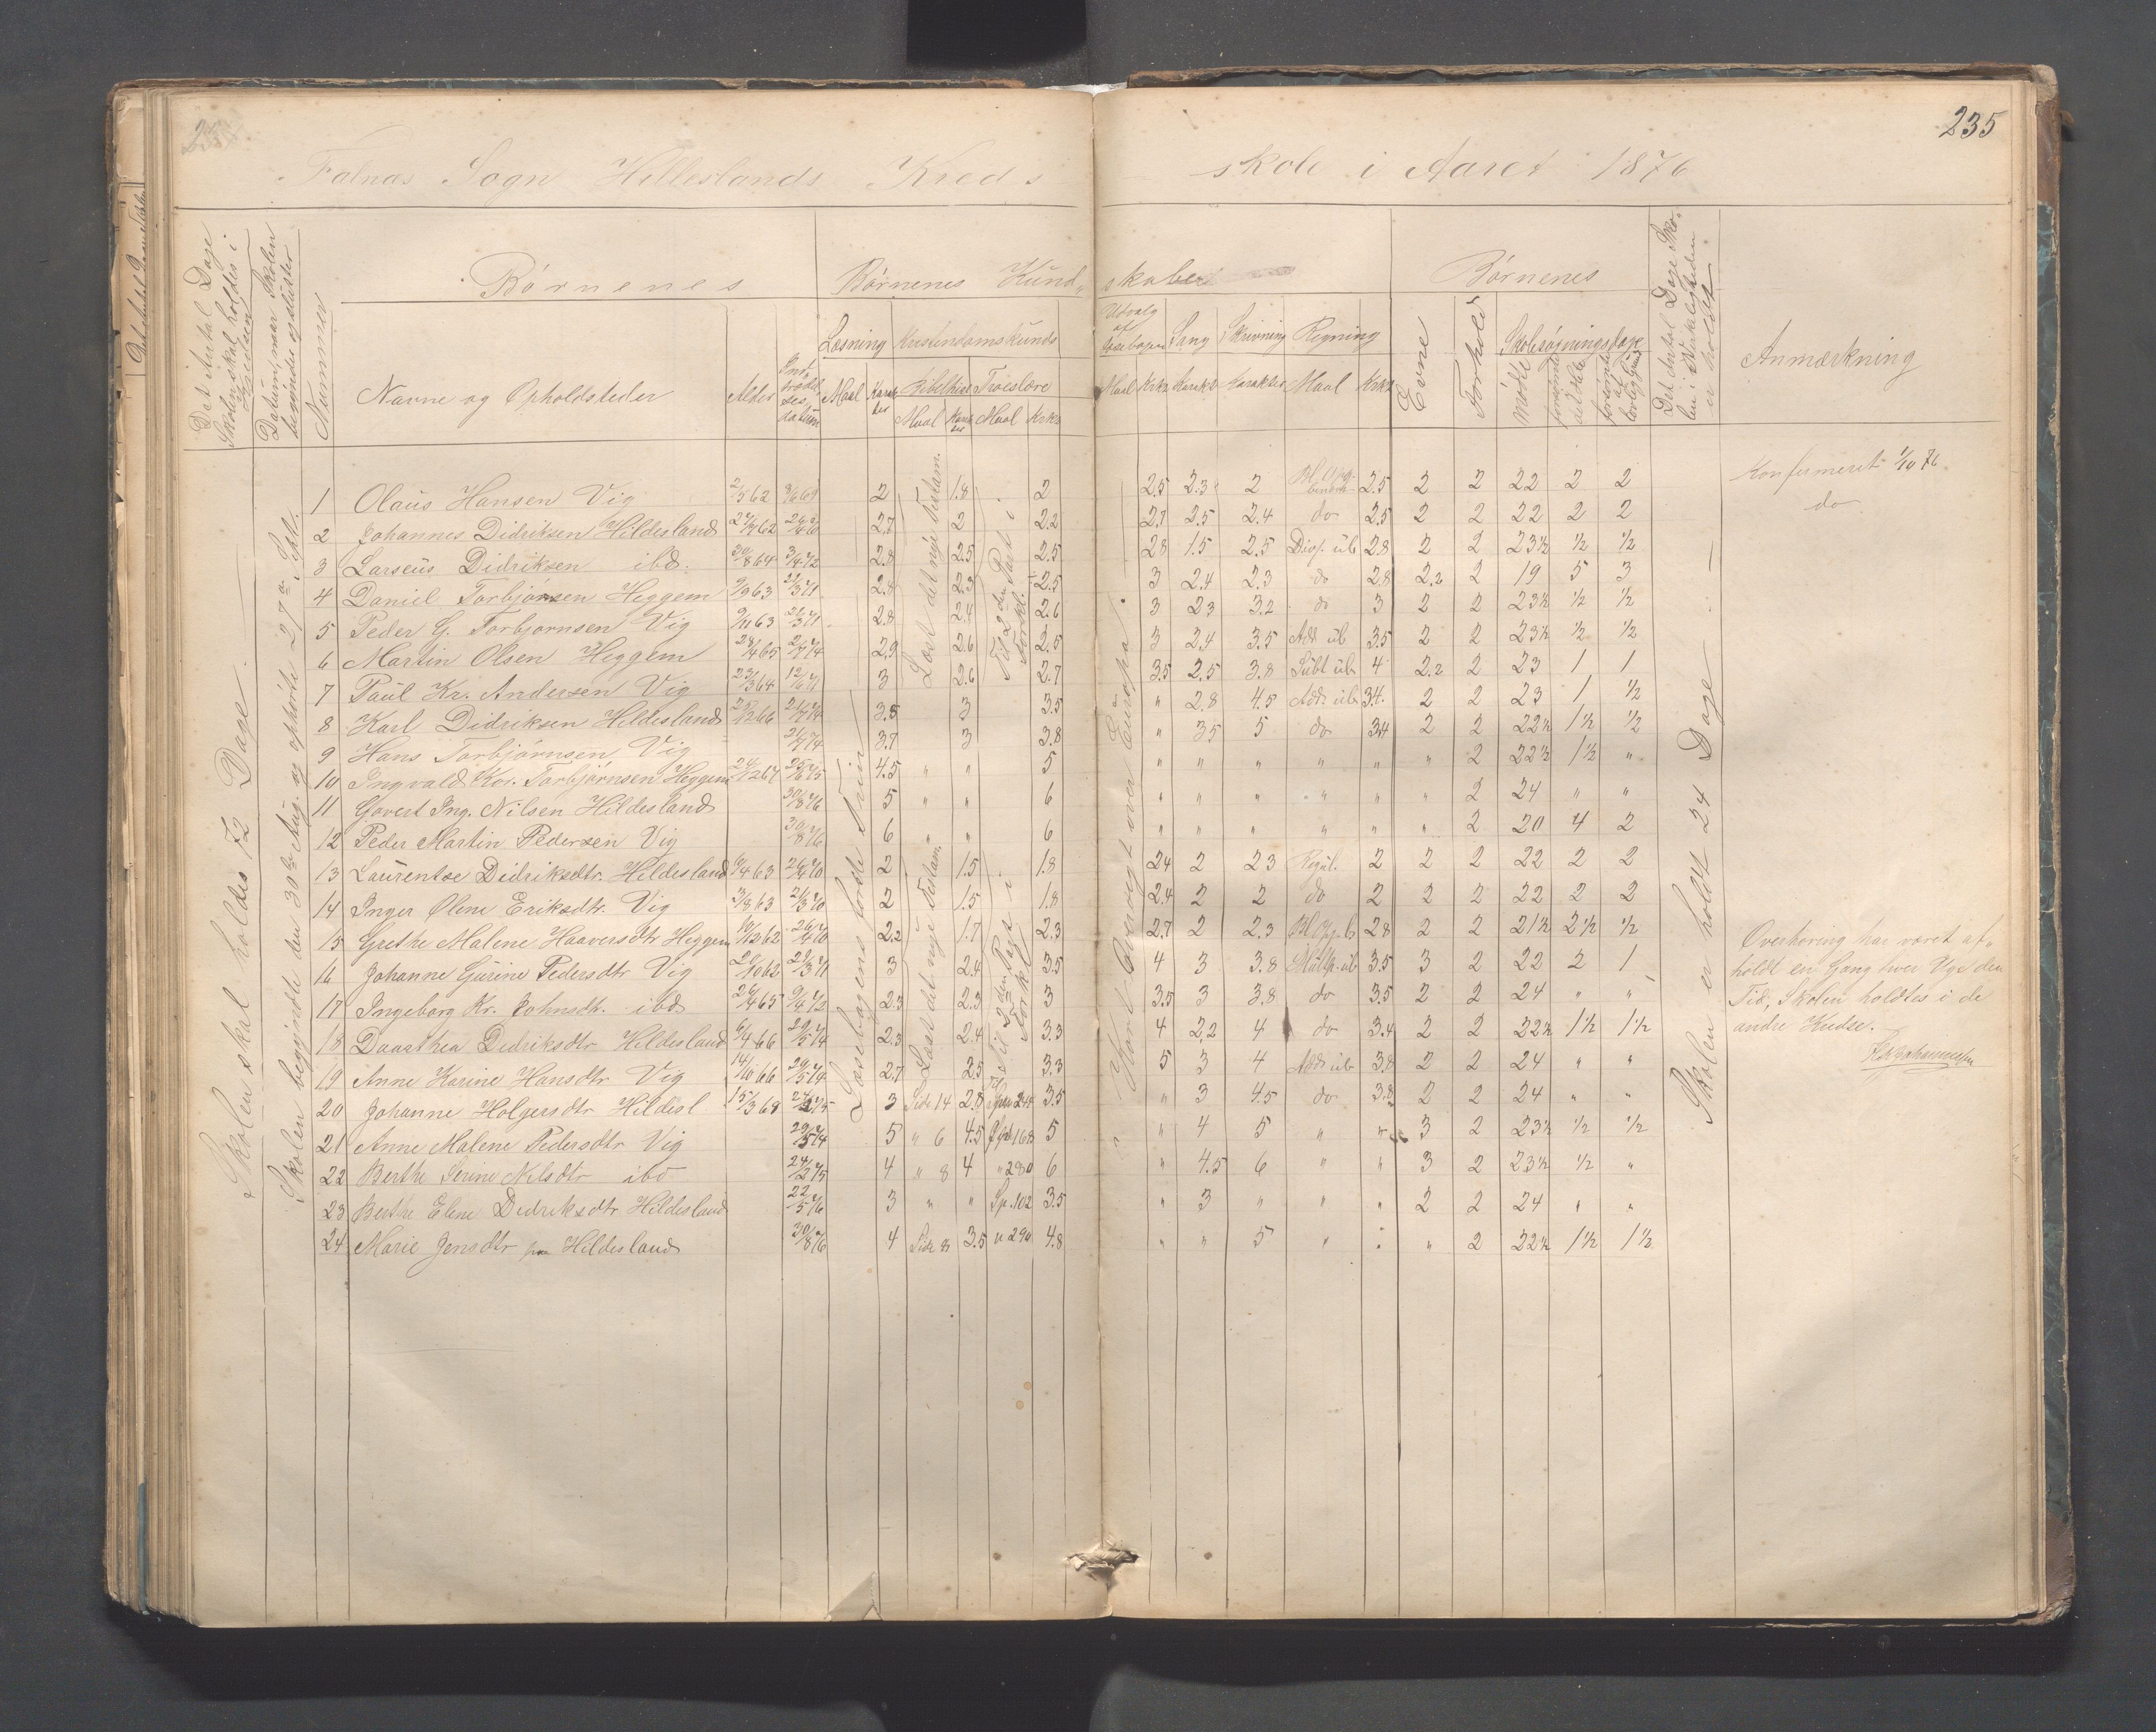 235
Falnæs Sogn Hilleslands Kreds skole i Aaret 1876
Det Antal Dage Skolen skal holdes i Kredsen
Datum, naar Skolen begyndte og slutter
Nummer
Børnenes
Navne og Opholdsteder
Alder
Indtrædelsesdatum
Børnenes Kundskaber
Læsning Kristendomskundskab
Maal Karakter Bibelhist Troeslære
Maal Karakter Maal Krkt
Udvalg af Læsebogen Sang Skrivning Regning
Maal Krkt Karakt Karakter Maal Krkt
Børnenes
Evne Forhold Skolesøgningsdage
Mødte forsømte det Hele forsømte af lovlig Grund
Det Antal Dage Skolen i Virkeligheden er holdt
Anmærkning
Skolen skal holdes 72 Dage
Skolen begyndte den 30te Aug. og ophørte 27de Sept.
Læsebogens førde Trin
Læst det nye Testam.
Til 2den Part i Forkl.
Læst det nye Testam.
Til 2den Part i Forkl.
Kort Oversigt over Europa
Skolen er holdt 24 Dage
1 Olaus Hansen Vig 2/5 62 3/6 69 2 1.8 2 2.5 2.3 2 2.5 2 2 22 2 2 Konfirmeret 1/10 76
2 Johannes Didriksen Hildesland 2.7 2 2.2 2.7 2.5 2.4 do 2.5 2 2 22 2 2 do
3 Larseus Didriksen ibd. 30/8 64 3/4 72 2.8 2.5 2.5 2.8 1.5 2.5 Divs. üb 2.8 2 2 23½ ½ ½
4 Daniel Torbjørnsen Heggem 9/9 63 2.8 2.3 2.5 3 2.4 2.3 do 2.8 2.2 2 19 5 3
5 Peder G. Torbjørnsen Vig 9/11 63 21/3 71 2.8 2.4 2.6 3 2.3 3.2 do 3 2 2 23½ ½ ½
6 Martin Olsen Heggem 28/4 65 2.9 2.6 2.5 3 2.4 3.5 Add üb 3.5 2 2 23½ ½ ½
7 Paul Kr. Andersen Vig 23/3 64 12/6 71 3 2.6 2.7 3.5 2.5 3.8 Subt üb 4 2.2 2 23 1 1
8 Karl Didriksen Hildesland 3.5 3 3.5 " 2.8 4.5 Add. üb 3.4 2 2 23 1 ½
9 Hans Torbjørnsen Vig 3.7 3 3.8 " 3.5 5 do 3.4 2 2 22½ 1½ ½
10 Ingvald Kor. Torbjørnsen Heggem 24/12 67 25/6 75 4.5 " " 5 " " " " " " 2 22½ 1½ "
11 Govert Ing. Nilsen Hildesland 30/8 76 5 " " 6 " " " " " " 2 24 " "
12 Peder Martin Pedersen Vig 30/8 76 6 " " 6 " " " " " " 2 20 4 2
13 Laurentse Didriksdtr. Hildesland 9/4 63 26/4 70 2 1.5 1.8 2.4 2 2.3 Regul. 2 2 2 22 2 2
14 Inger Oline Eriksdtr. Vig 3/8 63 21/3 70 2 1.5 1.8 2.4 2 2 do 2 2 2 22 2 2
15 Grethe Malene Haaversdtr Heggem 10/12 62 26/4 70 2.2 1.7 2.3 2.7 2 2.3 2.8 2 2 21½ 2½ ½
16 Johanne Gurine Pedersdtr Vig 21/3 71 3 2.4 3.5 4 3 3.8 Mult. üb 3.5 3 2 22 2 1
17 Ingeborg Kr. Johnsdtr. ibd 26/4 65 9/6 72 2.3 2.3 3 3.5 3 3.8 do 3.5 2 2 24 " "
18 Daasthea Didriksdtr Hildesland 6/4 66 29/5 74 2.3 2.4 3.3 4 2,2 4 do 3.4 2 2 22½ 1½ 1½
19 Anne Karine Hansdtr Vig 14/10 66 29/5 74 2.7 2.5 3.3 5 3 4 Add üb 3.8 2 2 24 " "
20 Johanne Holgersdtr Hildesl 15/3 68 3 Side 14 2.8 3.5 " 3 4.5 do 3.8 2 2 24 " "
21 Anne Malene Pedersdtr Vig 29/5 74 5 " 6 4.5 168 5 " 4 5 " " 3 2 23½ ½ ½
22 Berthe Serine Nilsdtr ibd 24/2 75 4 " 8 4 " 280 6 " 4.5 6 " " 3 2 23½ ½ "
23 Berthe Eline Didriksdtr Hildesland 22/5 76 3 " " Sp. 102 3.5 " 3 " " " 2 2 24 " "
24 Marie Jensdtr Hildesland 30/8 76 4 Side 8 3.5 " 290 4.8 " " 5 " " " 2 22½ 1½ 1½
Overhøring har været af-
holdt en Gang hver Uge den
Tid, Skolen holdtes i de
andre Kredse.